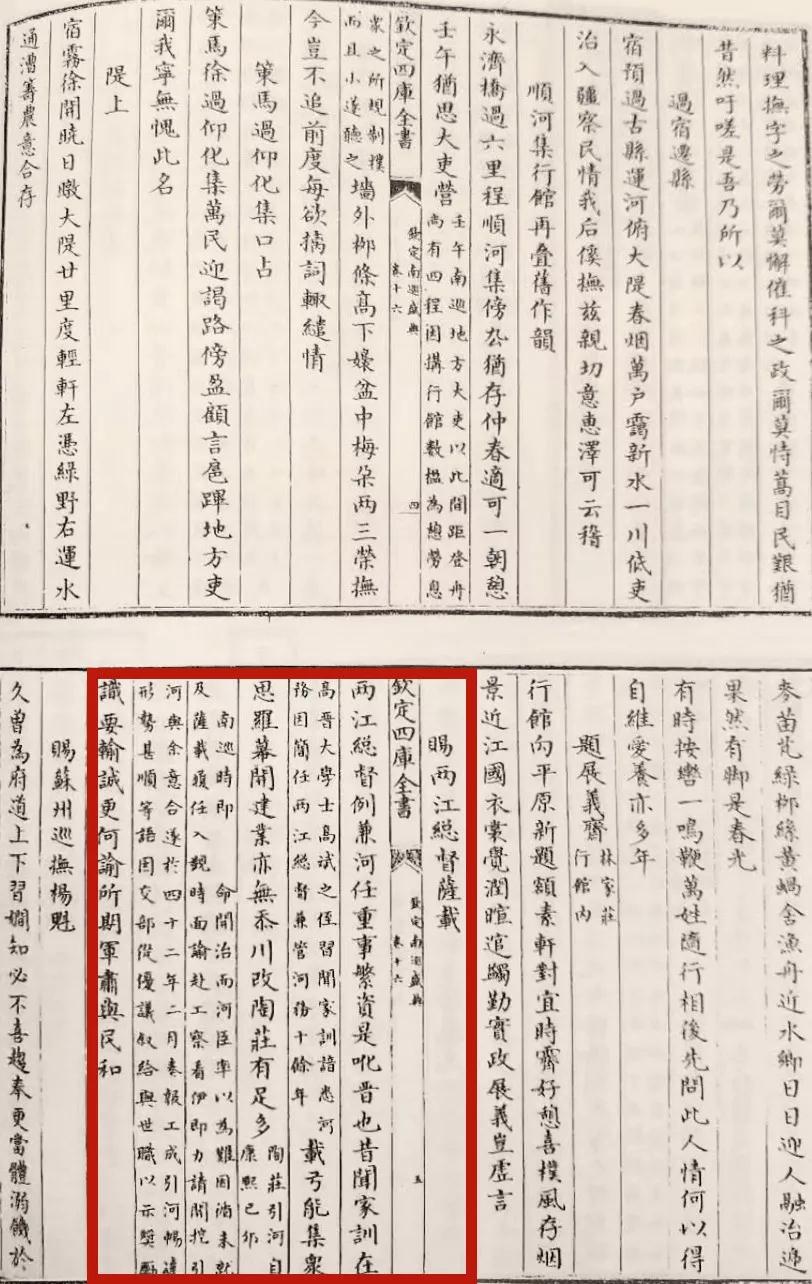 料理撫字之勞爾莫懈催科之政爾莫恃蒿目民艱猶
昔然吁嗟是吾乃所以
過宿遷縣
宿預過古縣運河俯大隄春烟萬户靄新水一川低吏
治入疆察民情我后徯撫兹親切意惠澤可云稽
順河集行館再疊舊作韻
永濟橋過六里程順河集傍厺猶存仲春適可一朝憩
壬午猶思大吏營
壬午南巡地方大吏以此間距登舟
尚有四程因搆行館數楹為憩勞息
欽定四庫全書
欽定南巡盛典
卷十六
四
衆之所規制樸
而且小遂聽之
墻外柳條高下嫋盆中梅朶两三榮撫
今豈不追前度每欲摛詞輙繾情
策馬過仰化集口占
策馬徐過仰化集萬民迎謁路傍盈顧言扈蹕地方吏
爾我寧無愧此名
隄上
宿霧徐開曉日暾大隄廿里度輕軒左憑綠野右運水
通漕籌農意合存
麥苗芃綠柳絲黄蝸舍漁舟近水鄉日日迎人融冶遞
果然有脚是春光
有時按轡一鳴鞭萬姓隨行相後先問此人情何以得
自維愛養亦多年
題展義齋
林家莊
行館内
行館向平原新題額素軒對宜時霽好憩喜樸風存烟
景近江國衣裳覺潤暄逌躅勤實政展義豈虚言
賜两江總督薩載
欽定四庫全書
欽定南巡盛典
卷十六
五
两江總督例兼河任重事繁資是吪晋也昔聞家訓在
高晋大學士高斌之侄習聞家訓諳悉河
務因簡任两江總督兼管河務十餘年
載兮能集衆
思羅幕開建業亦無忝川改陶莊有足多
陶莊引河自
康熙己卯
南巡時即 命開治而河臣率以為難因循未就
及薩載履任入覲時面諭赴工察看伊即力請開挖引
河與余意合遂於四十二年二月奏報工成引河暢達
形勢甚順等語因交部從優議叙給與世職以示奬勵
識要輸誠更何諭所期軍肅與民和
賜蘇州巡撫楊魁
久曾為府道上下習嫻知必不喜趨奉更當體溺饑於